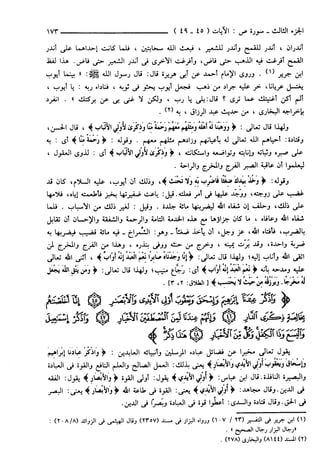 الجزء الثالث - سورة ص : الآيات (٤٥ - ٤٩) ١٧٣
أندران ، أندر للقمح وأندر للشعير ، فبعث الله سحابتين ، فلما كانت إحداهما على أندر
القمح أفرغت فيه الذهب حتى فاض، وأفرغت الأخرى في أندر الشعير حتى فاض. هذا لفظ
ابن جرير (١) . وروى الإمام أحمد عن أبي هريرة قال: قال رسول الله ﷺ : «بينما أيوب
يغتسل عرياناً، خر عليه جراد من ذهب فجعل أيوب يحثو في ثوبه ، فناداه ربه : يا أيوب ،
ألم أكن أغنيتك عما ترى ؟ قال: بلى يا رب ، ولكن لا غنى بي عن بركتك » . انفرد
بإخراجه البخاري ، من حديث عبد الرزاق ، به (٢) .
ولهذا قال تعالى : ﴿ وَوَهَبْنَا لَهُ أَهْلَهُ وَمِثْلَهُم مَّعَهُمْ رَحْمَةً مِّنَّا وَذِكْرَى لِأُوْلِي الْأَلْبَابِ ﴾ ، قال الحسن،
وقتادة: أحياهم الله تعالى له بأعيانهم وزادهم مثلهم معهم . وقوله : ﴿ رَحْمَةً مِّنَّا ﴾ أي : به
على صبره وثباته وإنابته وتواضعه واستكانته ، ﴿ وَذِكْرَى لِأُوْلِي الْأَلْبَابِ ﴾ أي : لذوي العقول ،
ليعلموا أن عاقبة الصبر الفرج والمخرج والراحة .
وقوله: ﴿ وَخُذْ بِيَدِكَ ضِغْثًا فَاضْرِب بِّهِ وَلَا تَحْنَثْ ﴾، وذلك أن أيوب ، عليه السلام، كان قد
غضب على زوجته، ووجد عليها في أمر فعلته. قيل: باعت ضفيرتها بخبز فأطعمته إياه، فلامها
على ذلك، وحلف إن شفاه الله ليضربنها مائة جلدة . وقيل : لغير ذلك من الأسباب . فلما
شفاه الله وعافاه ، ما كان جزاؤها مع هذه الخدمة التامة والرحمة والشفقة والإحسان أن تقابل
بالضرب، فأفتاه الله، عز وجل، أن يأخذ ضغثاً ـ وهو: الشمراخ ـ فيه مائة قضيب فيضربها به
ضربة واحدة، وقد برّت يمينه ، وخرج من حنثه ووفى بنذره ، وهذا من الفرج والمخرج لمن
اتقى الله وأناب إليه؛ ولهذا قال تعالى: ﴿ إِنَّا وَجَدْنَاهُ صَابِرًا نِّعْمَ الْعَبْدُ إِنَّهُ أَوَّابٌ ﴾ ، أثنى الله تعالى
عليه ومدحه بأنه ﴿ نِّعْمَ الْعَبْدُ إِنَّهُ أَوَّابٌ ﴾ أي: رَجَّاع منيب؛ ولهذا قال تعالى: ﴿ وَمَن يَتَّقِ اللَّهَ يَجْعَل
لَّهُ مَخْرَجًا. وَيَرْزُقْهُ مِنْ حَيْثُ لَا يَحْتَسِبُ ﴾ [ الطلاق: ٢، ٣] .
وَاذْكُرْ عِبَادَنَا إِبْرَاهِيمَ وَإِسْحَاقَ وَيَعْقُوبَ أُوْلِي الْأَيْدِي وَالْأَبْصَارِ
إِنَّا أَخْلَصْنَاهُم بِخَالِصَةٍ ذِكْرَى الدَّارِ وَإِنَّهُمْ عِندَنَا لَمِنَ الْمُصْطَفَيْنَ الْأَخْيَارِ وَاذْكُرْ إِسْمَاعِيلَ
وَالْيَسَعَ وَذَا الْكِفْلِ وَكُلٌّ مِّنَ الْأَخْيَارِ هَذَا ذِكْرٌ
يقول تعالى مخبرا عن فضائل عباده المرسلين وأنبيائه العابدين : ﴿ وَاذْكُرْ عِبَادَنَا إِبْرَاهِيمَ
وَإِسْحَاقَ وَيَعْقُوبَ أُوْلِي الْأَيْدِي وَالْأَبْصَارِ ﴾ يعني بذلك: العمل الصالح والعلم النافع والقوة في العبادة
والبصيرة النافذة. قال ابن عباس: ﴿ أُوْلِي الْأَيْدِي ﴾ يقول: أولي القوة ﴿ وَالْأَبْصَارِ ﴾ يقول: الفقه
في الدين. وقال مجاهد: ﴿ أُوْلِي الْأَيْدِي ﴾ يعني: القوة في طاعة الله ﴿ وَالْأَبْصَارِ ﴾ يعني: البصر
في الحق. وقال قتادة والسدي: أعطوا قوة في العبادة وبصراً في الدين.
(١) ابن جرير في التفسير (٢٣/ ١٠٧) ورواه البزار في مسنده (٢٣٥٧) وقال الهيثمي في الزوائد (٨/ ٢٠٨) :
«رجال البزار رجال الصحيح» .
(٢) المسند (٨١٤٤) والبخاري (٢٧٨) .